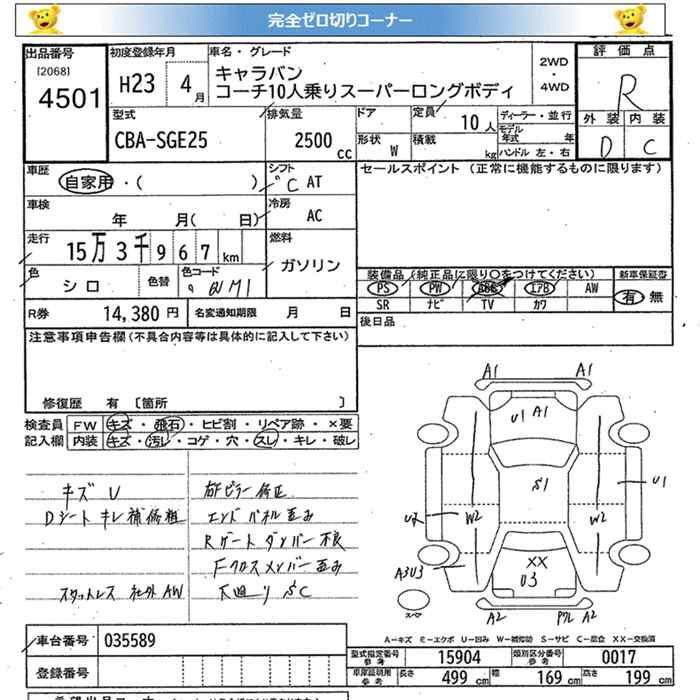 完全ゼロ切りコーナー
出品番号 初度登録年月 車名・グレード 2WD・4WD 評価点
[2068]
4501 H23 4月 キャラバン R
コーチ10人乗りスーパーロングボディ
型式 排気量 ドア 定員 10人 ディーラー・並行 外装 内装
CBA-SGE25 2500cc 形状 W 積載 kg モデル年式 年 D C
ハンドル 左・右
車歴 シフト セールスポイント (正常に機能するものに限ります)
自家用・( ) °C AT
車検 年 月( 日) 冷房 AC
走行 15万3千967km 燃料 ガソリン
色 シロ 色替 色コード QM1 装備品 (純正品に限り○をつけてください) 新車保証書
PS PW ABS エアB AW 有・無
SR ナビ TV カワ
R券 14,380円 名変通知期限 月 日 後日品
注意事項申告欄(不具合内容等は具体的に記入して下さい)
修復歴 有 〔箇所 〕
検査員 FW キズ・飛石・ヒビ割・リペア跡・×要
記入欄 内装 キズ・汚レ・コゲ・穴・スレ・キレ・破レ
キズ U
Dシート キレ 補修粗
スタットレス 社外AW
右Fピラー修正
エンドパネル歪み
Rゲートダンパー不良
Fクロスメンバー歪み
下廻りSC
A1 A1
U1 A1
S1
U1
U2 W2 W2
A3U3
XX
U3
スペア
A2 PクレA2
A-キズ E-エクボ U-凹み W-補修跡 S-サビ C-腐食 XX-交換済
車台番号 035589
登録番号
型式指定番号 参考 15904 類別区分番号 参考 0017
車庫証明用 参考 長さ 499cm 幅 169cm 高さ 199cm